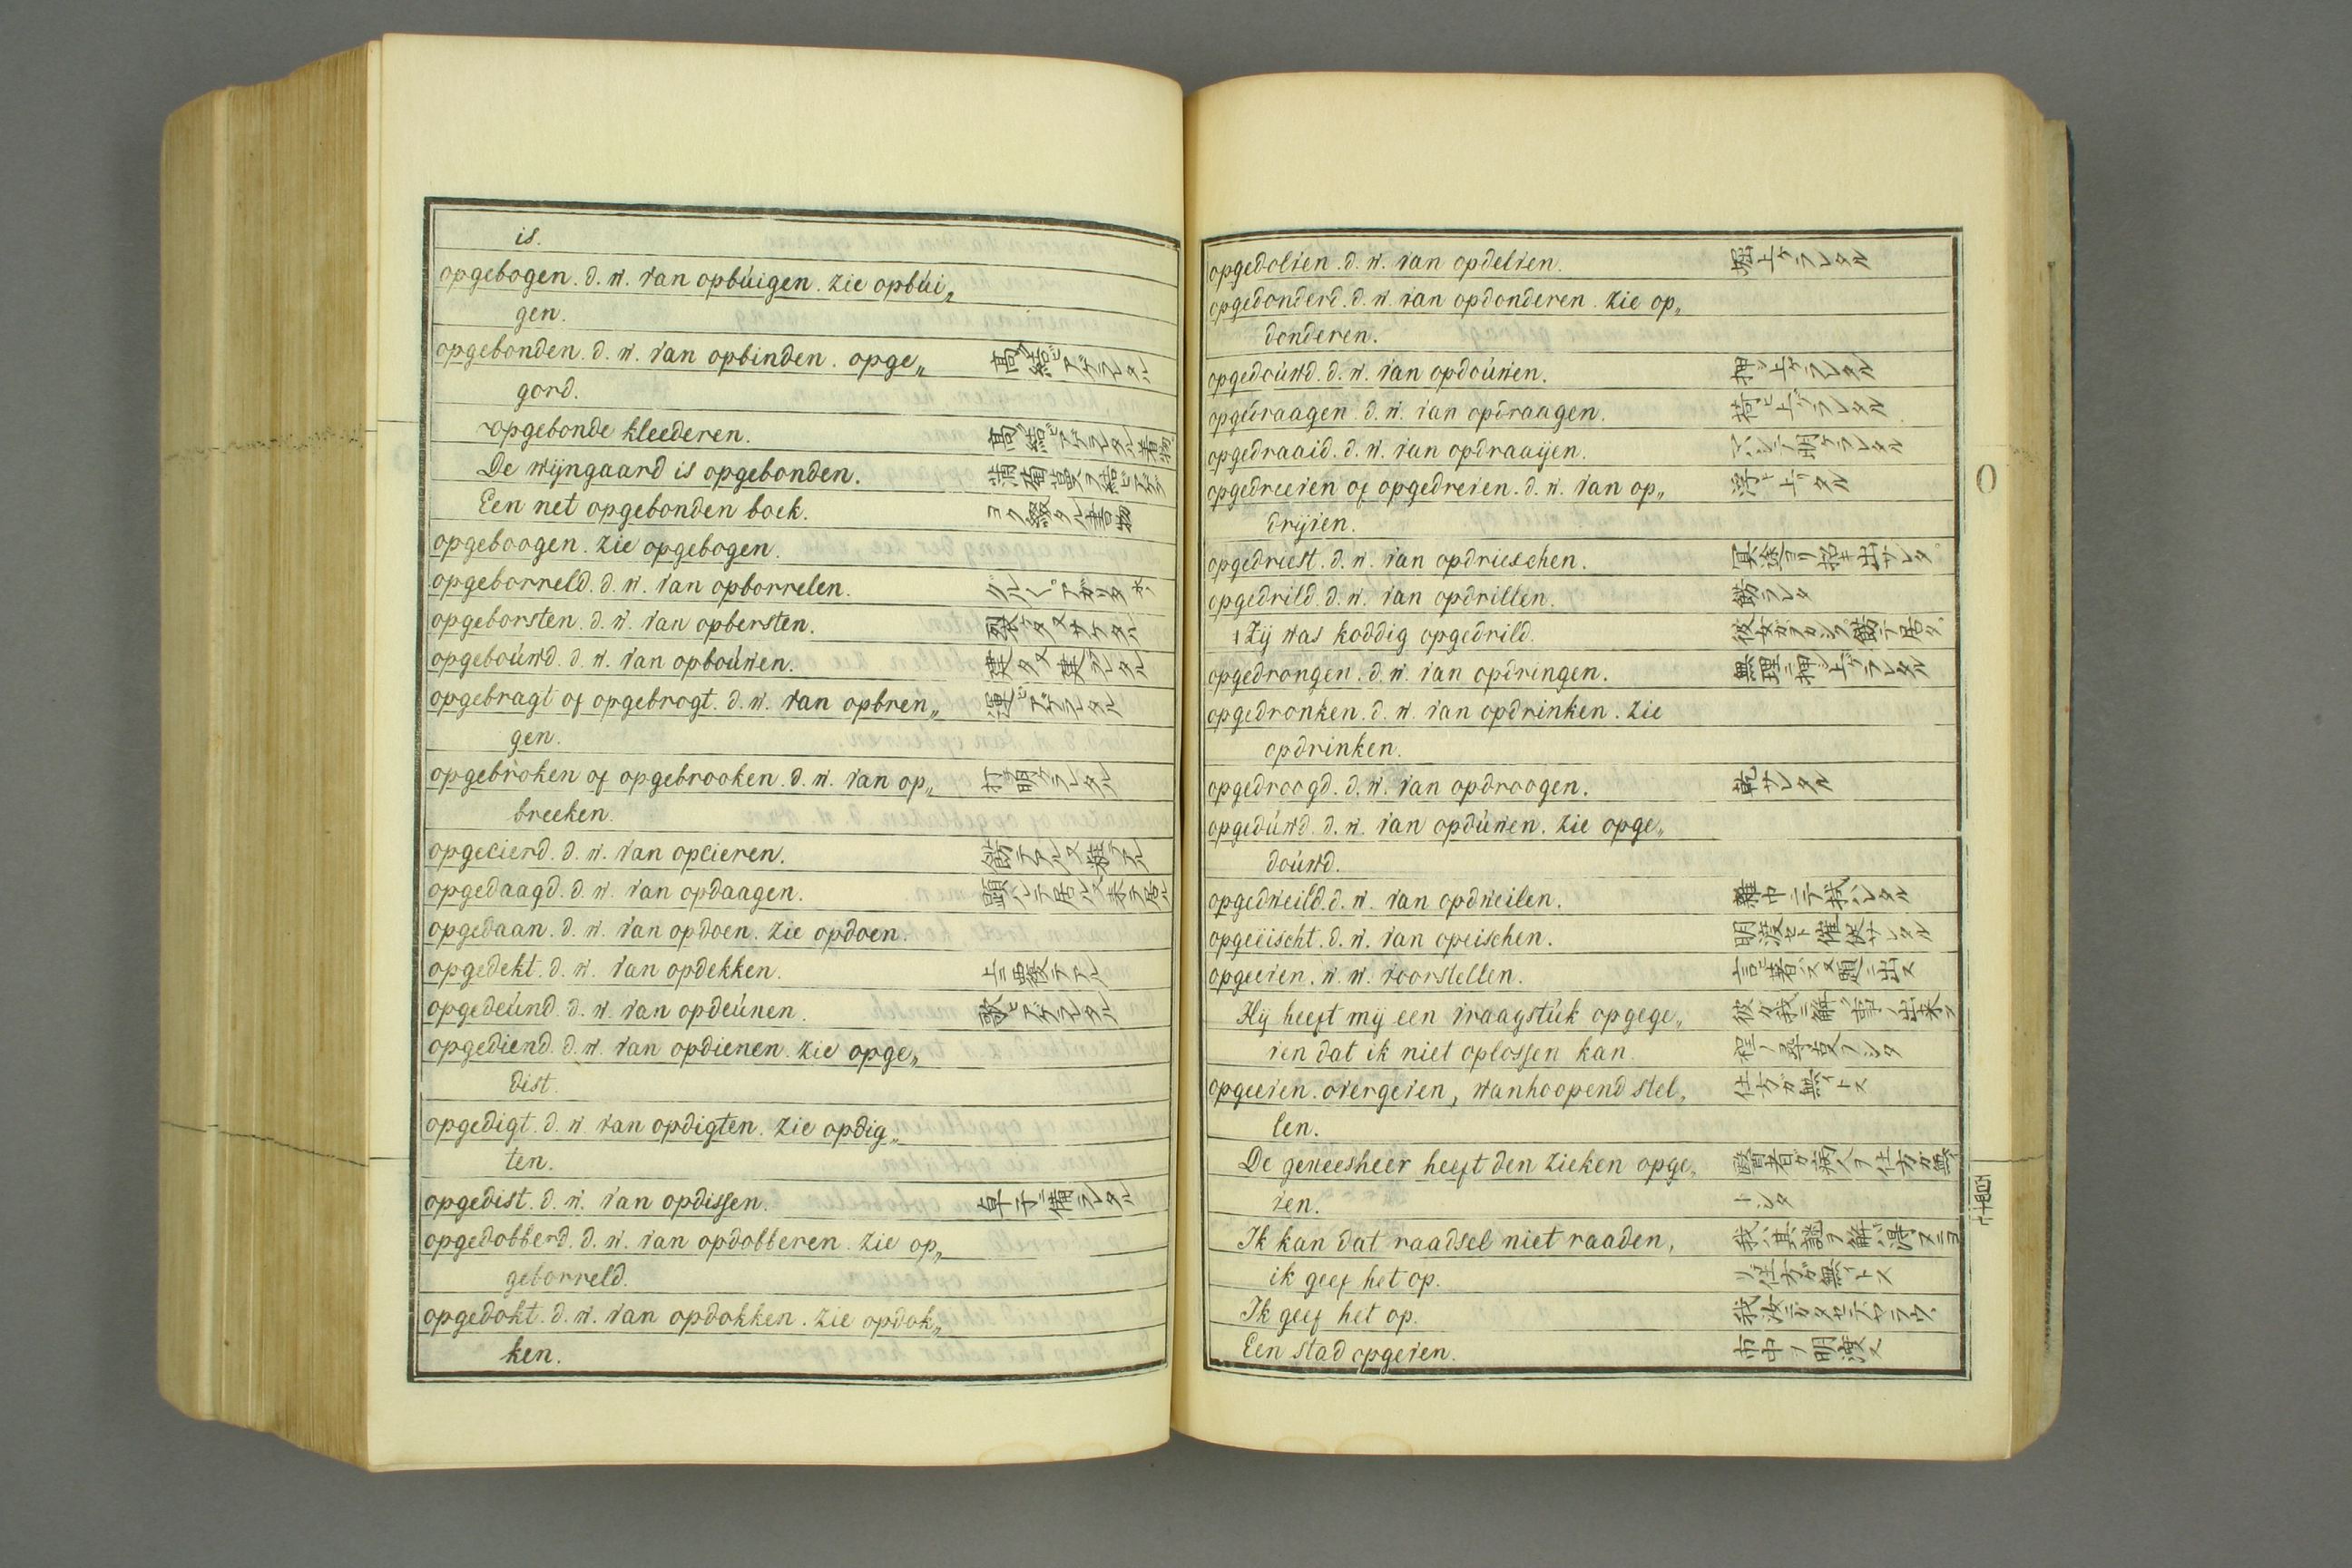 is.
opgebogen. d. w. van opbúigen. zie opbúi„
gen.
opgebonden. d. w. van opbinden. opge„ 高ク結ビアゲラレタル
gord.
opgebonde kleederen. 高ク結ビアゲラレタル着物
De wijngaard is opgebonden. 葡萄蔓ヲ結ビアゲタ
Een net opgebonden boek. ヨク綴タル書物
opgeboogen. zie opgebogen.
opgeborreld. d. w. van opborrelen.
opgeborsten. d. w. van opbersten.
opgeboúwd. d. w. van opboúwen.
opgebragt of opgebrogt. d. w. van opbren„ 運ビアゲラレタル
gen.
opgebroken of opgebrooken. d. w. van op„ 打明ケラレタル
breeken.
opgecierd. d. w. van opcieren.
opgedaagd. d. w. van opdaagen.
opgedaan. d. w. van opdoen. zie opdoen.
opgedekt. d. w. van opdekken. 上ニ覆テアル
opgedeúnd. d. w. van opdeúnen. 歌ヒアゲラレタル
opgediend. d. w. van opdienen. zie opge„
dist.
opgedigt. d. w. van opdigten. zie opdig„
ten.
opgedist. d. w. van opdissen. 卓子ニ備ラレタル
opgedobberd. d. w. van opdobberen. zie op„
geborreld.
opgedokt. d. w. van opdokken. zie opdok„
ken.
opgedolven. d. w. van opdelven. 堀上ゲラレタル
opgedonderd. d. w. van opdonderen. zie op„
donderen.
opgedoúwd. d. w. van opdoúwen. 押シ上ゲラレタル
opgedraagen. d. w. van opdraagen. 荷ヒ上ゲラレタル
opgedraaid. d. w. van opdraaijen. マハシテ明ケラレタル
opgedreeven of opgedreven. d. w. van op„ 浮ヒ上リタル
drijven.
opgedriest. d. w. van opdrieschen.
opgedrild. d. w. van opdrillen. 飾ラレタ
Zij was koddig opgedrild.
opgedrongen. d. w. van opdringen. 無理ニ押シ上ゲラレタル
opgedronken. d. w. van opdrinken. zie
opdrinken.
opgedroogd. d. w. van opdroogen. 乾サレタル
opgedúwd. d. w. van opdúwen. zie opge„
doúwd.
opgedweild. d. w. van opdweilen. 雜巾ニテ拭ハレタル
opgeëischt. d. w. van opeischen. 明渡セト催促サレタル
opgeeven. w. w. voorstellen.
Hij heeft mij een vraagstúk opgege„
ven dat ik niet oplossen kan.
opgeeven. overgeven, wanhoopend stel„ 仕方ガ無イトス
len.
De geneesheer heeft den zieken opge„ 醫者ガ病人ヲ仕方ガ無イ
ven. トシタ
Ik kan dat raadsel niet raaden,
ik geef het op. 仕方ガ無イトス
Ik geef het op.
Een stad opgeven. 市中ノ明渡ス
O